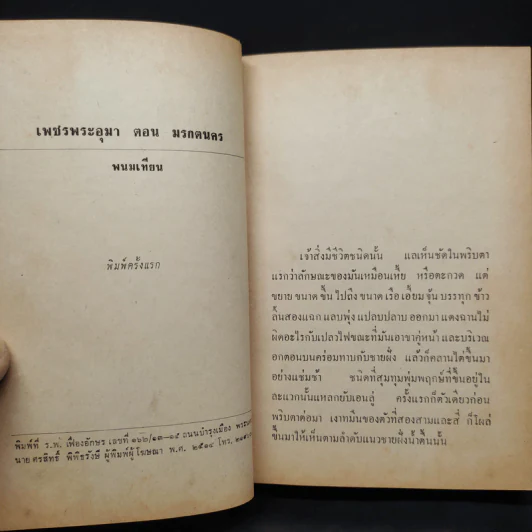 เพชรพระอุมา ตอน มรกตนคร
พนมเทียน
พิมพ์ครั้งแรก
พิมพ์ที่ ร.พ. เฟื่องอักษร เลขที่ ๑๖๖/๑๓-๑๔ ถนนบำรุงเมือง
นายศรสิทธิ์ พิพิธรังษี ผู้พิมพ์ผู้โฆษณา พ.ศ. ๒๕๑๔ โทร.
เจ้าสิ่งมีชีวิตชนิดนั้น แลเห็นชัดในพริบตา
แรกว่าลักษณะของมันเหมือนเหี้ย หรือตะกวด แต่
ขยาย ขนาด ขึ้น ไปถึง ขนาด เรือ เอี้ยม จุ๊น บรรทุก ข้าว
ลิ้นสองแฉก แลบพุ่ง แปลบปลาบ ออกมา แดงฉานไม่
ผิดอะไรกับเปลวไฟขณะที่มันเอาขาคู่หน้า และบริเวณ
อกตอนบนคร่อมทาบกับชายฝั่ง แล้วก็คลานไต่ขึ้นมา
อย่างแช่มช้า ชนิดที่สุมทุมพุ่มพฤกษ์ที่ขึ้นอยู่ใน
ละแวกนั้นแหลกยับเอนลู่ ครั้งแรกก็ตัวเดียวก่อน
พริบตาต่อมา เงาทมึนของตัวที่สองสามและสี่ ก็โผล่
ขึ้นมาให้เห็นตามลำดับแนวชายฝั่งน้ำตื้นนั้น